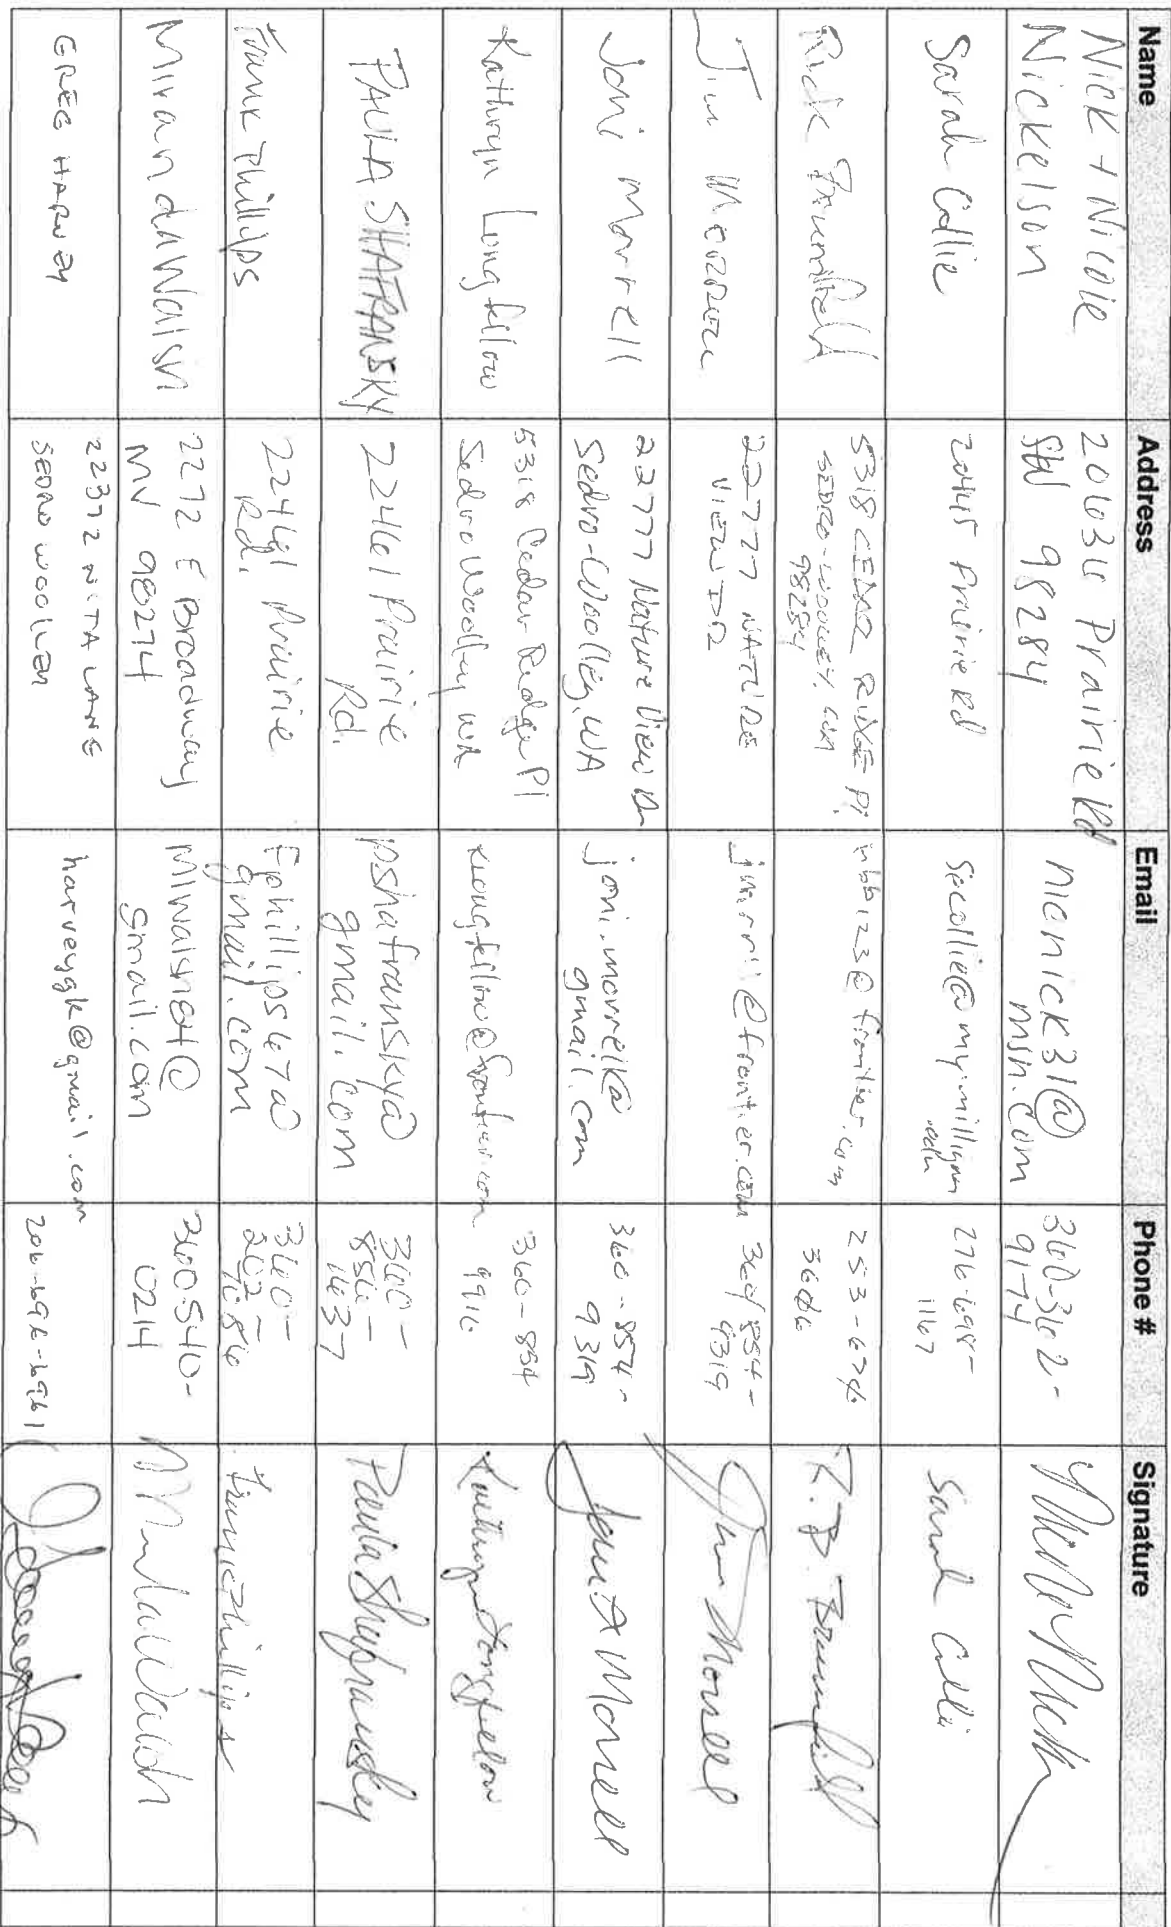 Name Address Email Phone # Signature
Nick + Nicole
Nickelson
20636 Prairie Rd
SW 98284
nicnick31@
msn.com
360-362-
9174
Sarah Collie
20415 Prairie Rd
Secollie@my.milligan
.edu
276-698-
1167
Sarah Collie
Rick Brumfield
5318 CEDAR RIDGE Pl
SEDRO-WOOLLEY, WA
98284
@frontier.com
253-676
3686
R. D. Brumfield
Jim Morrell
22777 NATURE
VIEW DR
@frontier.com
360/854-
9319
Jim Morrell
Joni Morrell
22777 Nature View Dr
Sedro-Woolley, WA
joni.morrell@
gmail.com
360-854-
9319
Morrell
Kathryn Longfellow
5318 Cedar Ridge Pl
Sedro Woolley, WA
klongfellow@frontier.com
360-854
9916
Kathryn Longfellow
PAULA SHAFRANSKY
22461 Prairie
Rd.
pshafransky@
gmail.com
360-
856-
1637
Paula Shafransky
Frank Phillips
22461 Prairie
Rd.
Fphillips67@
gmail.com
360-
202-
7086
Frank Phillips
Miranda Walsh
2272 E Broadway
MV 98274
@
gmail.com
360 540-
0214
Miranda Walsh
GREG HARVEY
22372 NITA LANE
SEDRO WOOLLEY
harveygk@gmail.com
206-696-6961